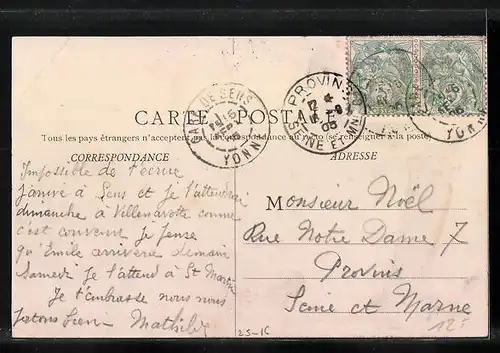 GARE DE SENS
YONNE
PROVINS
SEINE ET MNE
YONNE
CARTE POSTALE
Tous les pays étrangers n'acceptent pas la correspondance au recto (se renseigner à la poste)
CORRESPONDANCE
ADRESSE
Impossible de t'écrire
j'arrive à Sens et je t'attendrai
dimanche à Villenavotte comme
c'est convenu je pense
qu'Emile arrivera demain
samedi je l'attend à St Martin
Je t'embrasse nous nous
portons bien Mathilde
Monsieur Noël
Rue Notre Dame 7
Provins
Seine et Marne
25-16